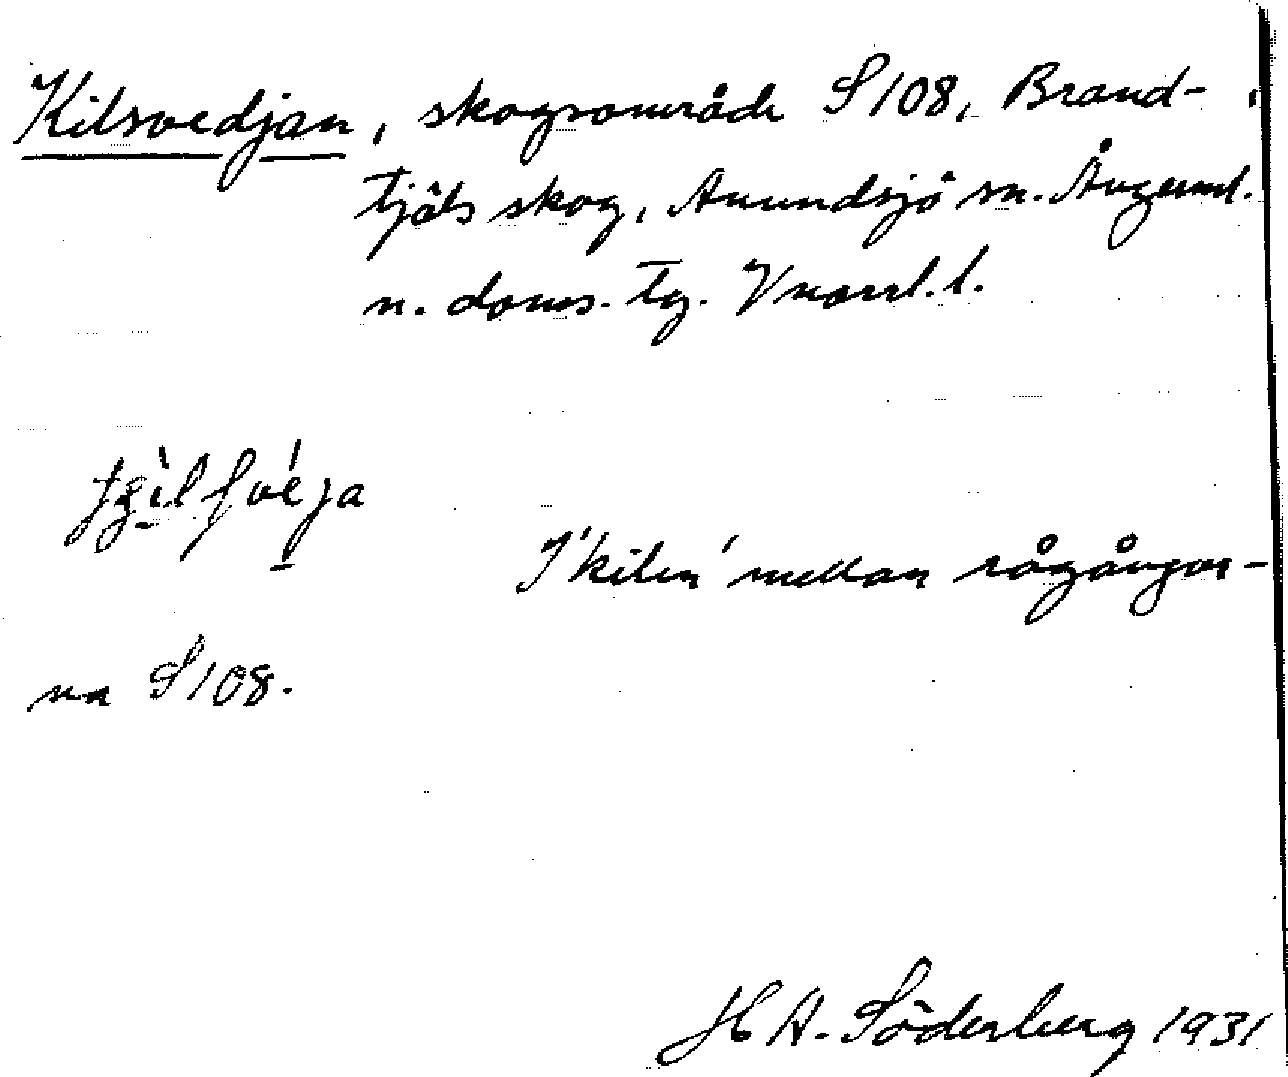 Kilsvedjan, skogsområde S108, Brand-
tjäls skog, Anundsjö sn. Ångerml.
n. doms. tg. Vnorrl. l.
I 'kilen' mellan rågångar-
na S108.
H A. Söderberg 1931